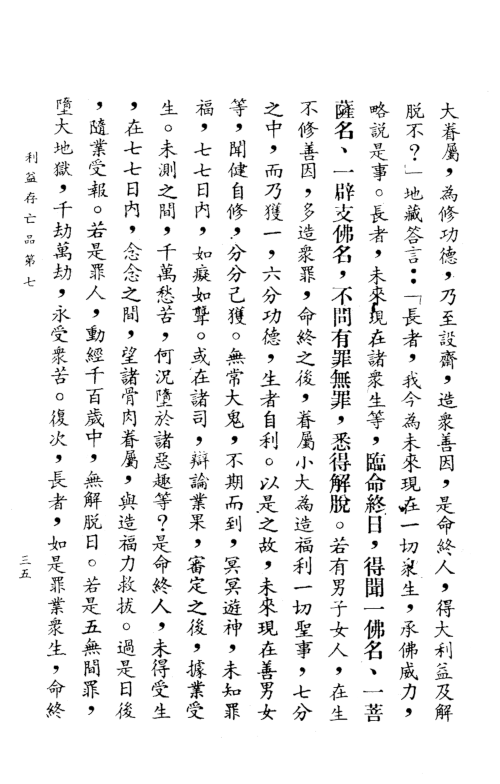 大眷屬，為修功德，乃至設齋，造衆善因，是命終人，得大利益及解
脫不？」地藏答言：「長者，我今為未來現在一切衆生，承佛威力，
略説是事。長者，未來現在諸衆生等，臨命終日，得聞一佛名、一菩
薩名、一辟支佛名，不問有罪無罪，悉得解脫。若有男子女人，在生
不修善因，多造衆罪，命終之後，眷屬小大為造福利一切聖事，七分
之中，而乃獲一，六分功德，生者自利。以是之故，未來現在善男女
等，聞健自修，分分己獲。無常大鬼，不期而到，冥冥遊神，未知罪
福，七七日内，如癡如聾。或在諸司，辯論業果，審定之後，據業受
生。未測之間，千萬愁苦，何況墮於諸惡趣等？是命終人，未得受生
，在七七日内，念念之間，望諸骨肉眷屬，與造福力救拔。過是日後
，隨業受報。若是罪人，動經千百歲中，無解脫日。若是五無間罪，
墮大地獄，千劫萬劫，永受衆苦。復次，長者，如是罪業衆生，命終
利益存亡品第七
三五